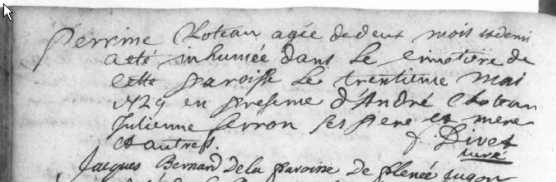 Perrine Choteau agée de deux mois et demi
a eté inhumée dans le cimetiere de
cette paroisse le trentieme mai
1729 en presense d'André Choteau
Julienne Perron ses pere et mere
et autres. Divet
curé
Jacques Bernard de la paroisse de plenée Jugon